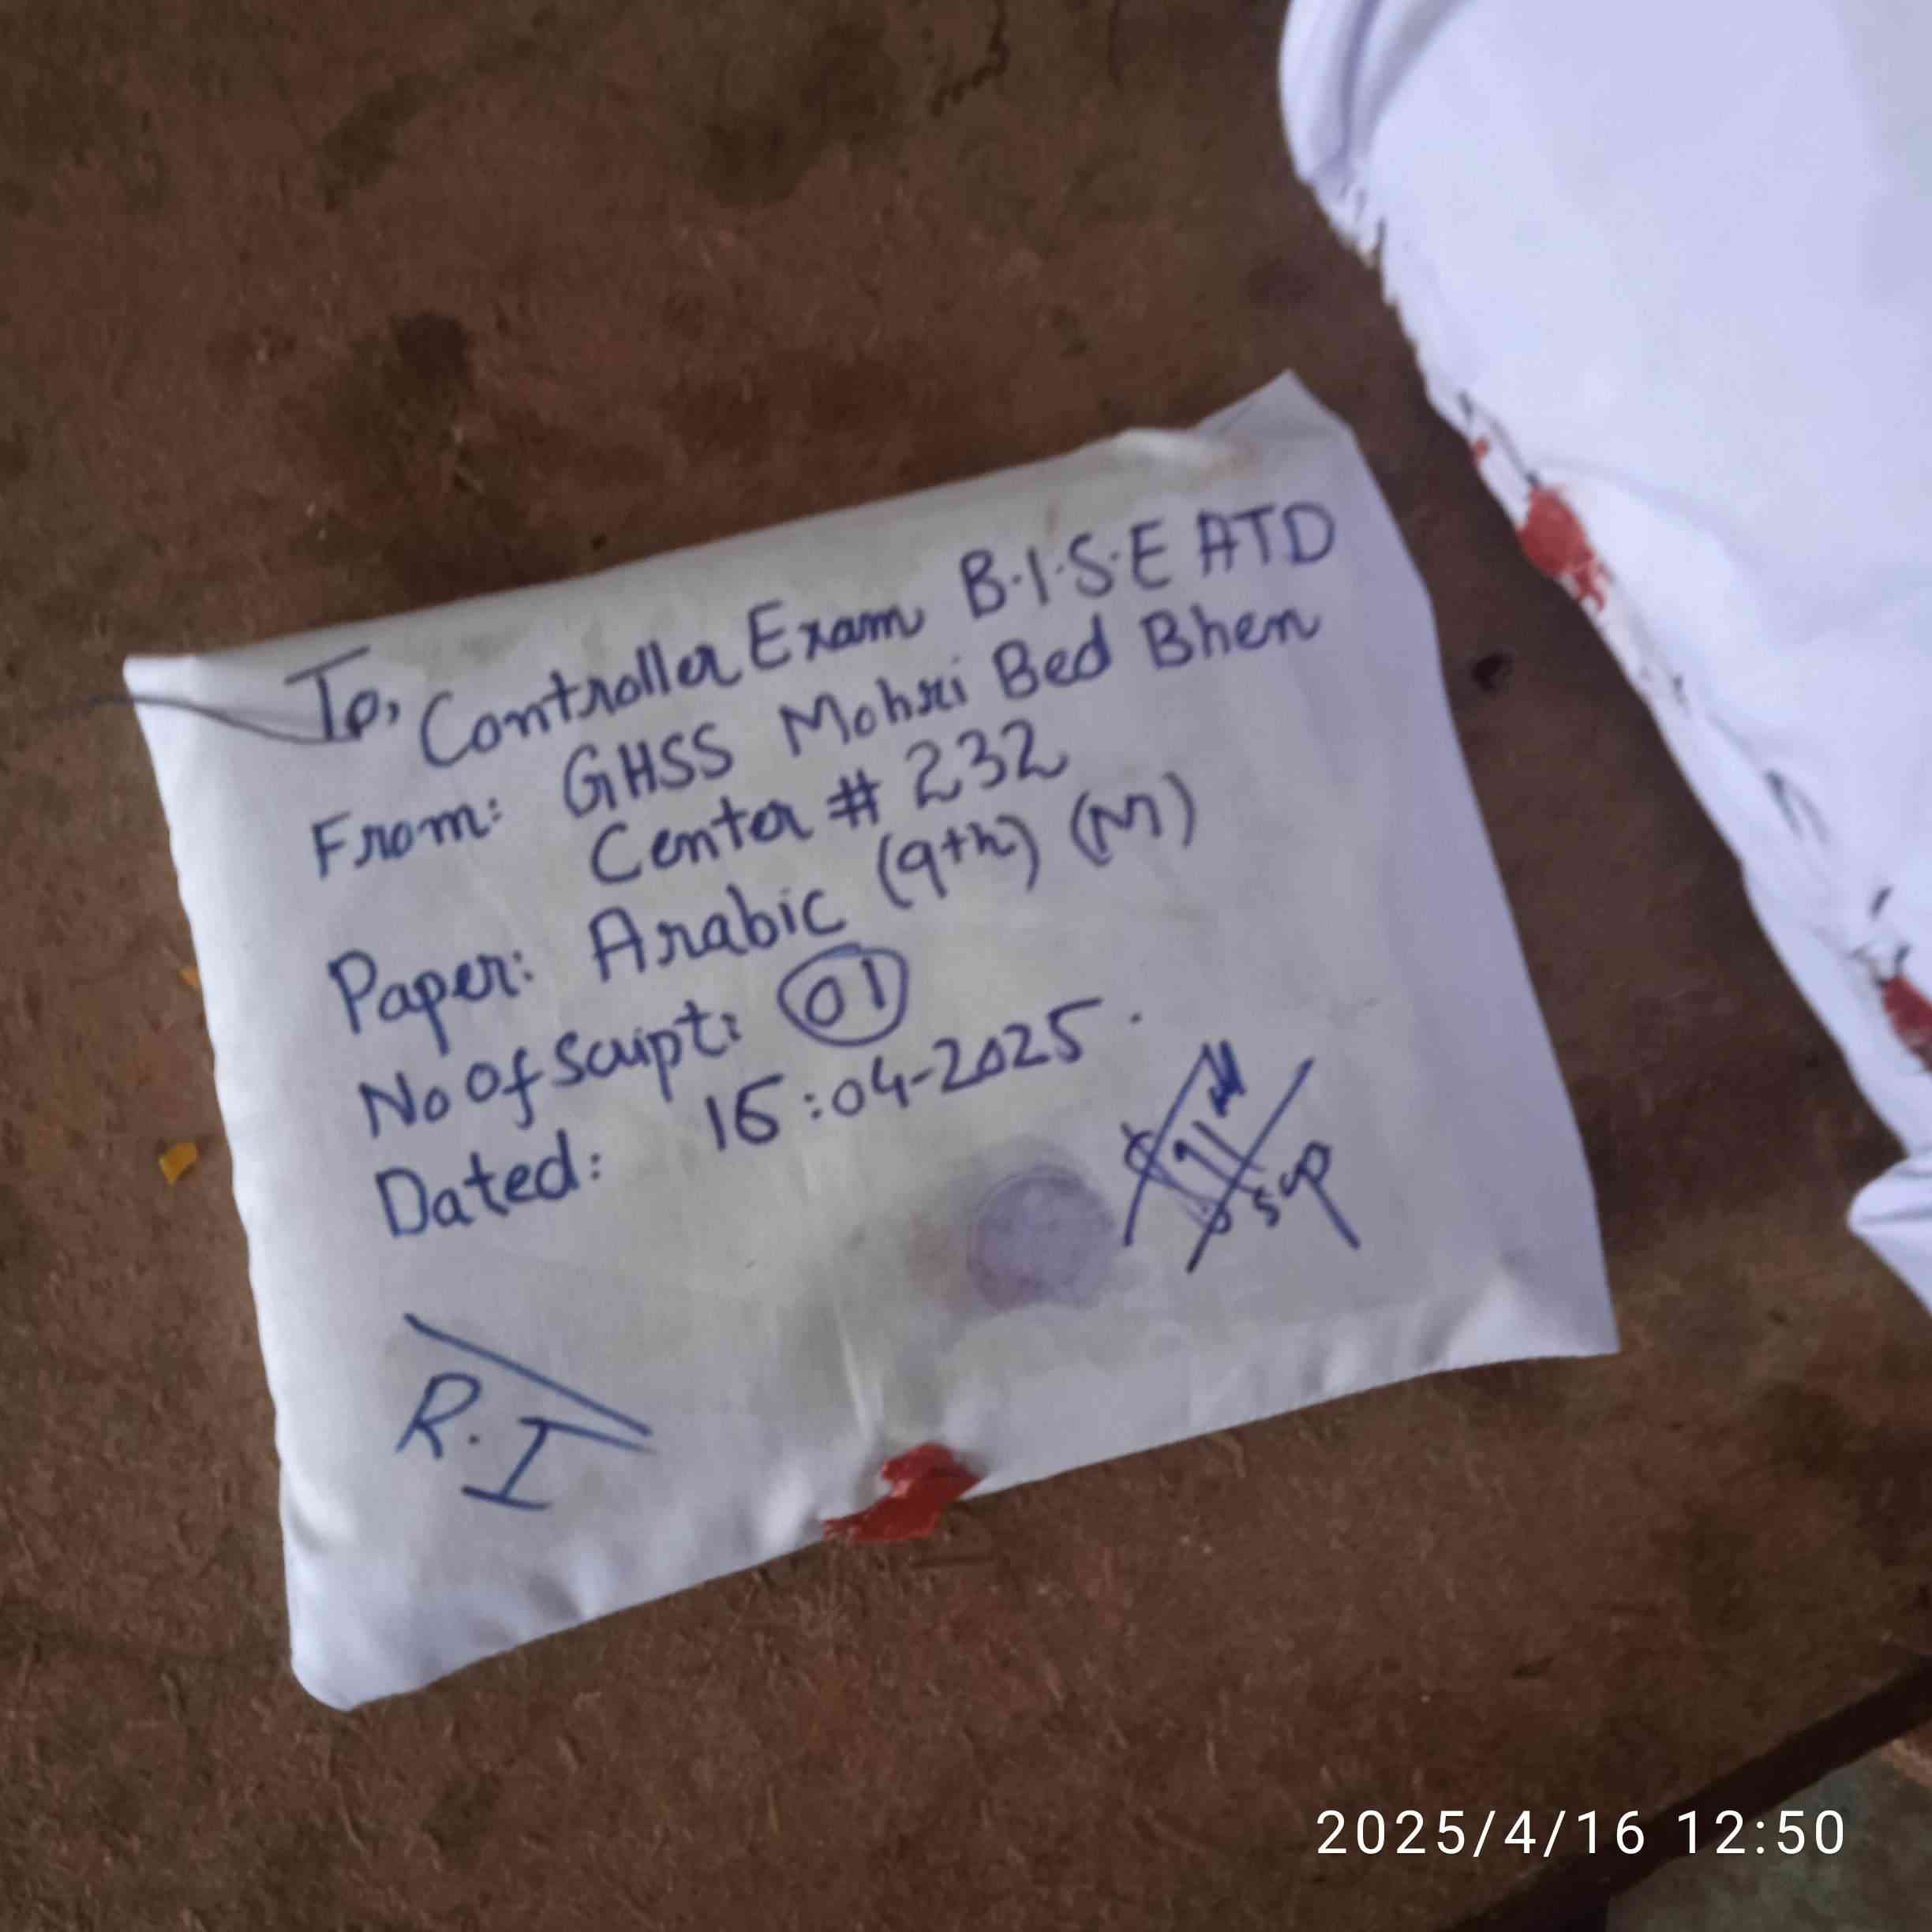 To,
Controller Exam B.I.S.E ATD
From: GHSS Mohri Bed Bhen
Center # 232
Paper: Arabic (9th) (M)
No Of Script: 01
Dated: 16:04-2025.
Sup
R.I
2025/4/16 12:50